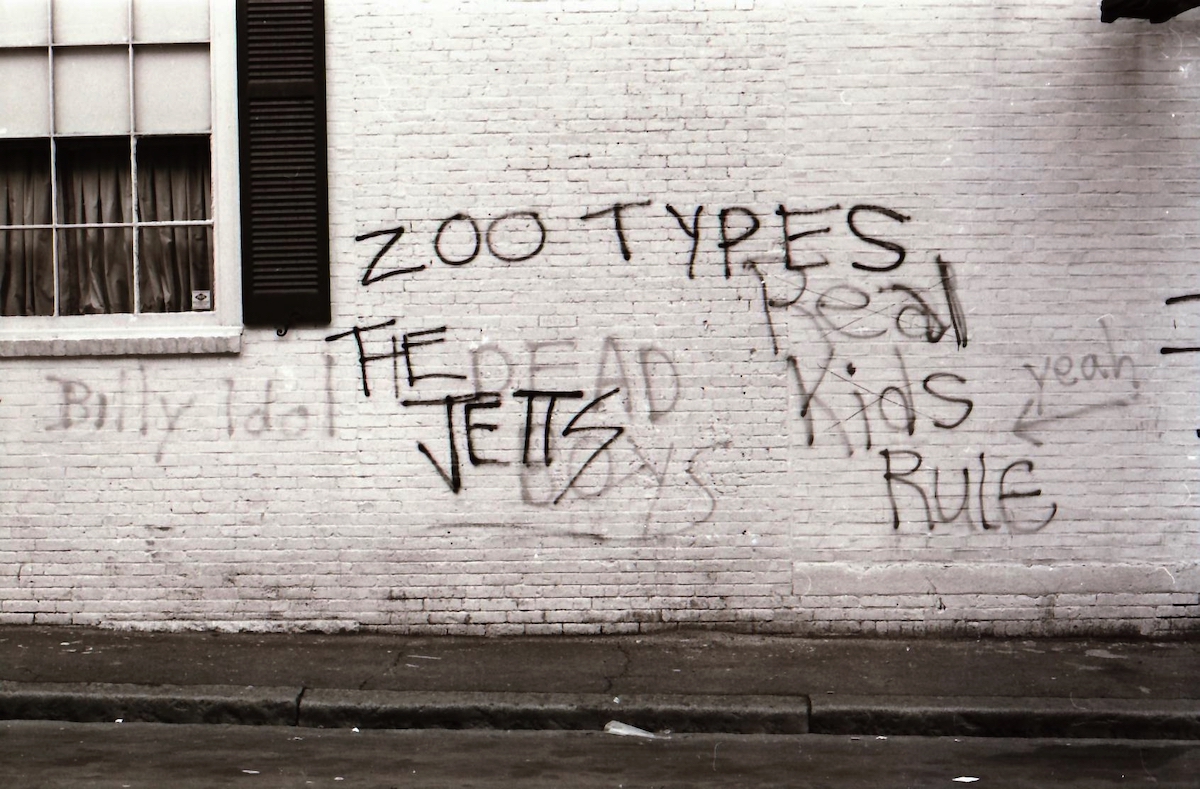 ZOO TYPES
Real
THE
DEAD
Kids
yeah
Billy Idol
JETTS
BOYS
RULE